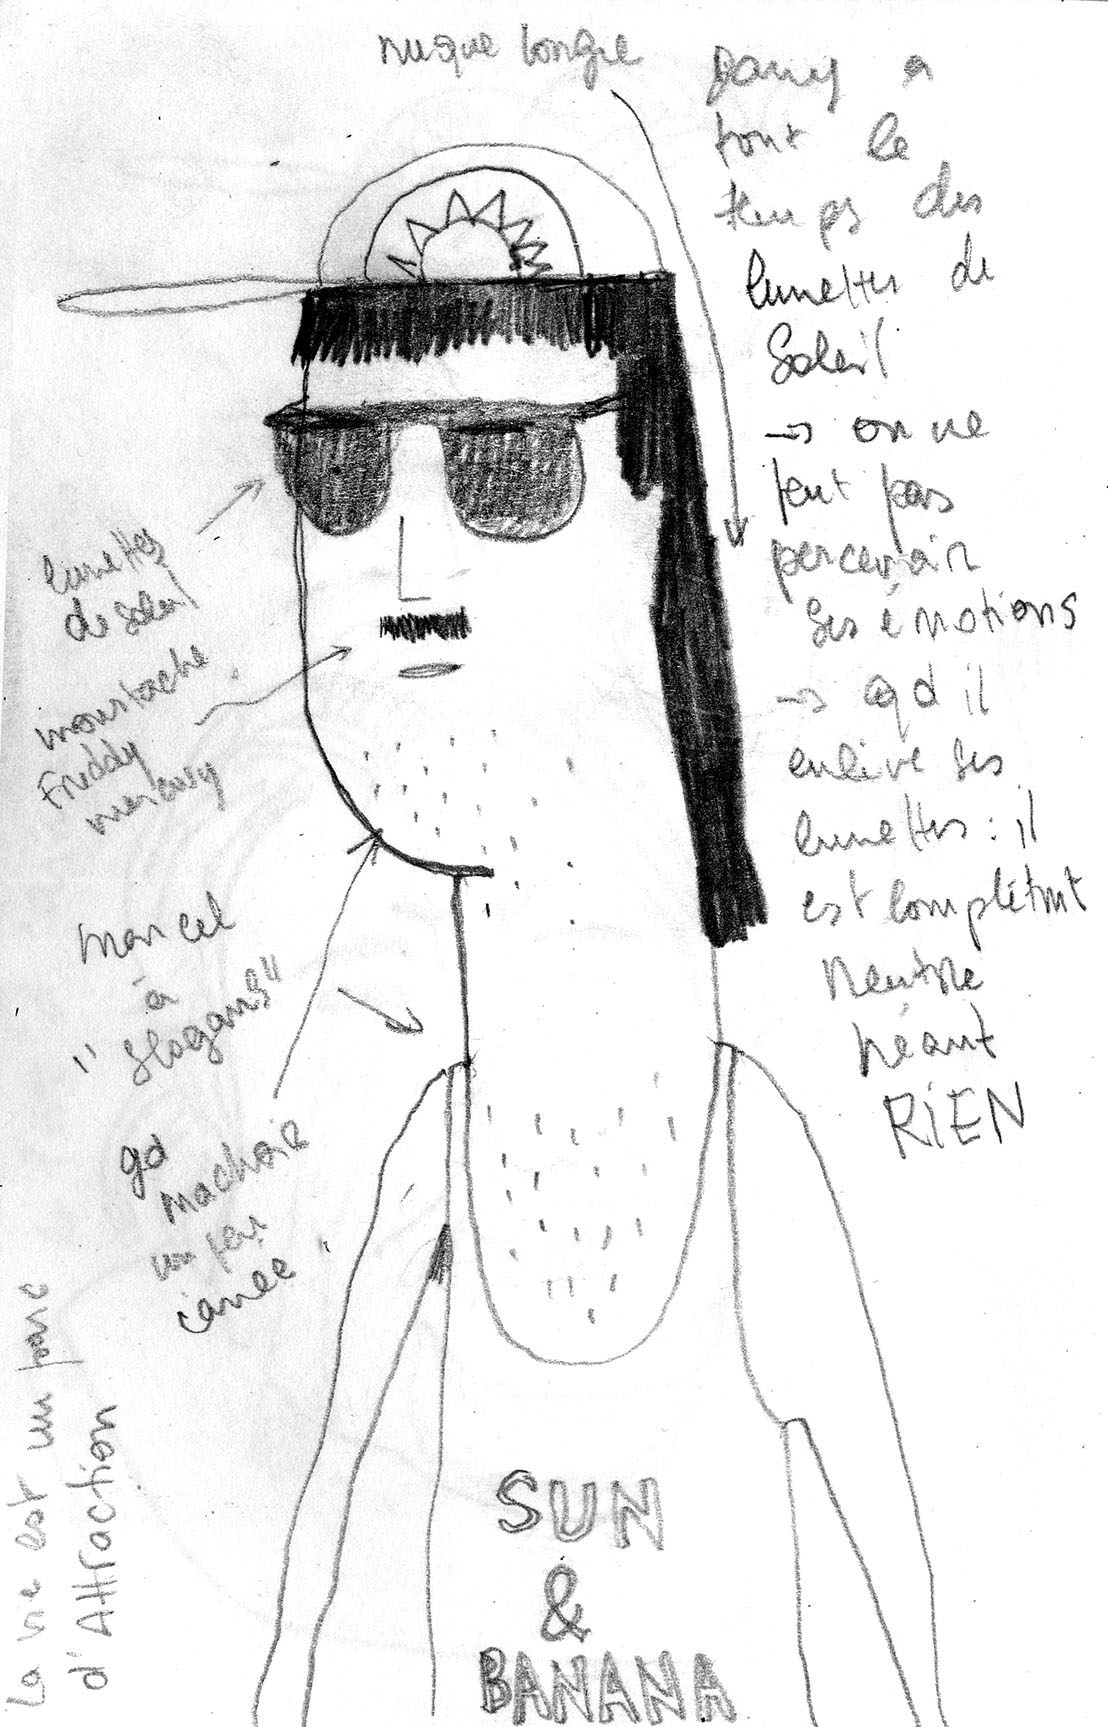 nuque longue
Dany a
tout le
temps des
lunettes de
Soleil
→ on ne
peut pas
percevoir
ses émotions
→ qd il
enlève ses
lunettes : il
est complètmt
Neutre
Néant
RiEN
lunettes
de soleil
moustache
Freddy
mercury
marcel
à
"slogans"
gd
machoire
un peu
carrée
La vie est un parc
d'Attraction
SUN
&
BANANA